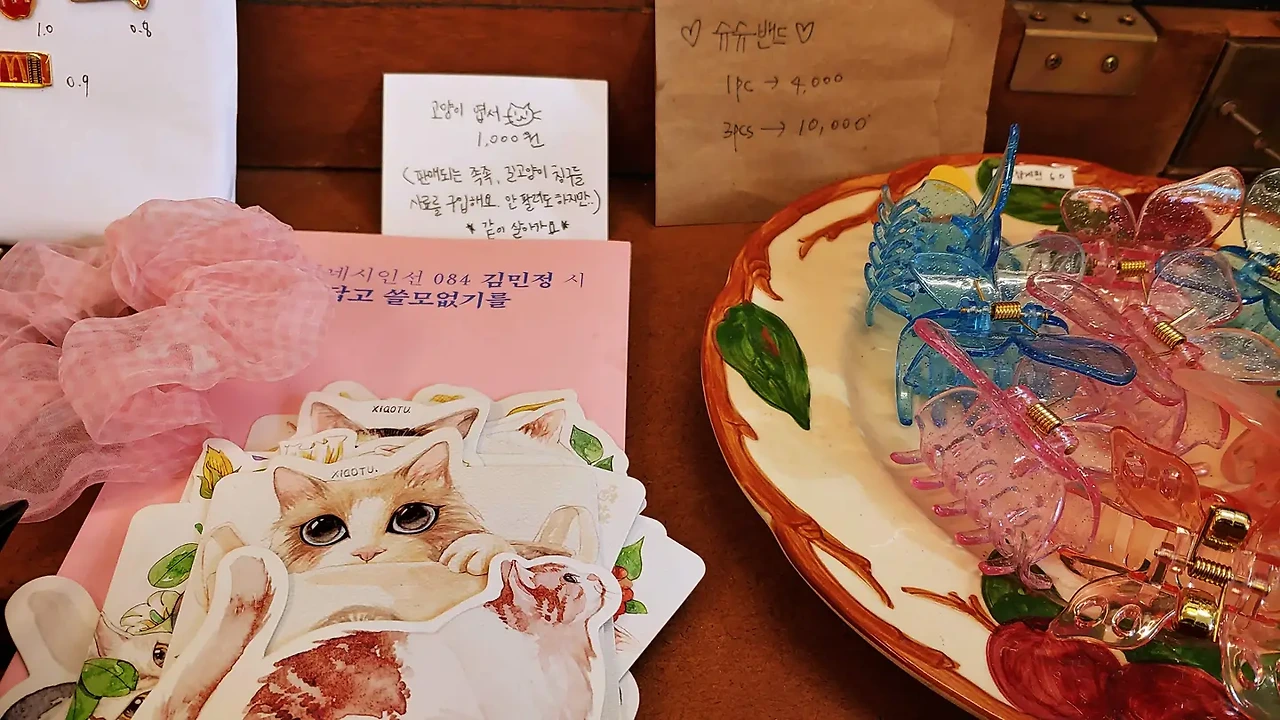 1.0
0.8
0.9
고양이 엽서
1,000원
(판매되는 족족, 길고양이 친구들
사료를 구입해요. 안 팔려도 하지만..)
* 같이 살아가요 *
♡ 슈슈밴드 ♡
1pc → 4,000
3pcs → 10,000
시인선 084 김민정 시
쓸모없기를
XIAOTU.
XIAOTU.
6.0